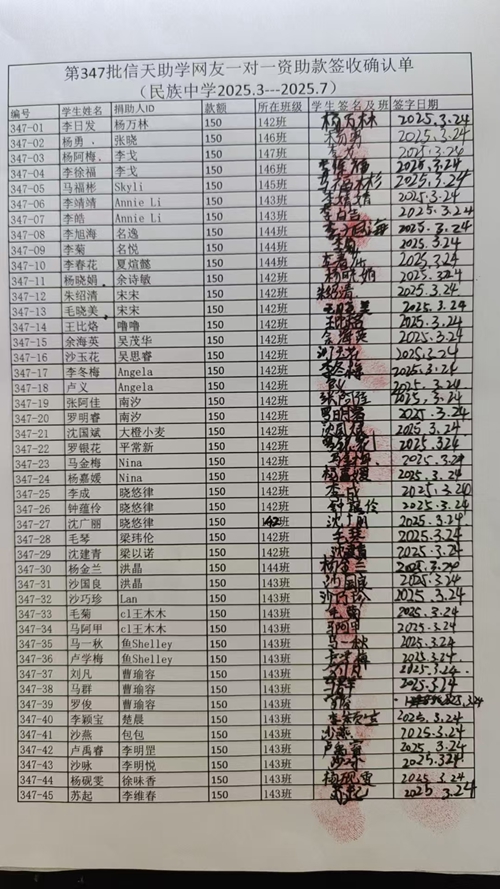 第347批信天助学网友一对一资助款签收确认单
（民族中学2025.3---2025.7）
编号 学生姓名 捐助人ID 款额 所在班级 学生签名及班 签字日期
347-01 李日发 杨万林 150 142班 杨万林 2025.3.24
347-02 杨勇 张晓 150 146班 2025.3.24
347-03 杨阿梅 李戈 150 147班 2025.3.24
347-04 李徐福 李戈 150 146班 李徐福 2025.3.24
347-05 马福彬 Skyli 150 145班 2025.3.24
347-06 李靖靖 Annie Li 150 143班 李靖靖 2025.3.24
347-07 李皓 Annie Li 150 143班 李皓 2025.3.24
347-08 李旭海 名逸 150 144班 李旭海 2025.3.24
347-09 李菊 名悦 150 144班 李菊 2025.3.24
347-10 李春花 夏煊懿 150 144班 2025.3.24
347-11 杨晓娟 余诗敏 150 142班 杨晓娟 2025.3.24
347-12 朱绍清 宋宋 150 142班 朱绍清 2025.3.24
347-13 毛晓美 宋宋 150 142班 毛晓美 2025.3.24
347-14 王比烙 噜噜 150 142班 王比烙 2025.3.24
347-15 余海英 吴茂华 150 142班 余海英 2025.3.24
347-16 沙玉花 吴思睿 150 142班 沙玉花 2025.3.24
347-17 李冬梅 Angela 150 142班 李冬梅 2025.3.24
347-18 卢义 Angela 150 142班 2025.3.24
347-19 张阿佳 南汐 150 142班 张阿佳 2025.3.24
347-20 罗明睿 南汐 150 142班 罗明睿 2025.3.24
347-21 沈国斌 大橙小麦 150 142班 沈国斌 2025.3.24
347-22 罗银花 平常新 150 142班 2025.3.24
347-23 马金梅 Nina 150 142班 马金梅 2025.3.24
347-24 杨嘉媛 Nina 150 142班 杨嘉媛 2025.3.24
347-25 李成 晓悠律 150 142班 李成 2025.3.24
347-26 钟蕴伶 晓悠律 150 142班 钟蕴伶 2025.3.24
347-27 沈广丽 晓悠律 150 142班 沈广丽 2025.3.24
347-28 毛琴 梁玮伦 150 142班 毛琴 2025.3.24
347-29 沈建青 梁以诺 150 142班 沈建青 2025.3.24
347-30 杨金兰 洪晶 150 144班 杨金兰 2025.3.24
347-31 沙国良 洪晶 150 143班 沙国良 2025.3.24
347-32 沙巧珍 Lan 150 143班 沙巧珍 2025.3.24
347-33 毛菊 cl王木木 150 143班 毛菊 2025.3.24
347-34 马阿甲 cl王木木 150 143班 马阿甲 2025.3.24
347-35 马一秋 鱼Shelley 150 143班 马一秋 2025.3.24
347-36 卢学梅 鱼Shelley 150 143班 2025.3.24
347-37 刘凡 曹瑜容 150 143班 2025.3.24
347-38 马群 曹瑜容 150 143班 2025.3.24
347-39 罗俊 曹瑜容 150 143班 2025.3.24
347-40 李颖宝 楚晨 150 143班 2025.3.24
347-41 沙燕 包包 150 143班 沙燕 2025.3.24
347-42 卢禹睿 李明罡 150 143班 卢禹睿 2025.3.24
347-43 沙咏 李明悦 150 143班 沙咏 2025.3.24
347-44 杨砚雯 徐味香 150 143班 杨砚雯 2025.3.24
347-45 苏起 李维春 150 143班 苏起 2025.3.24